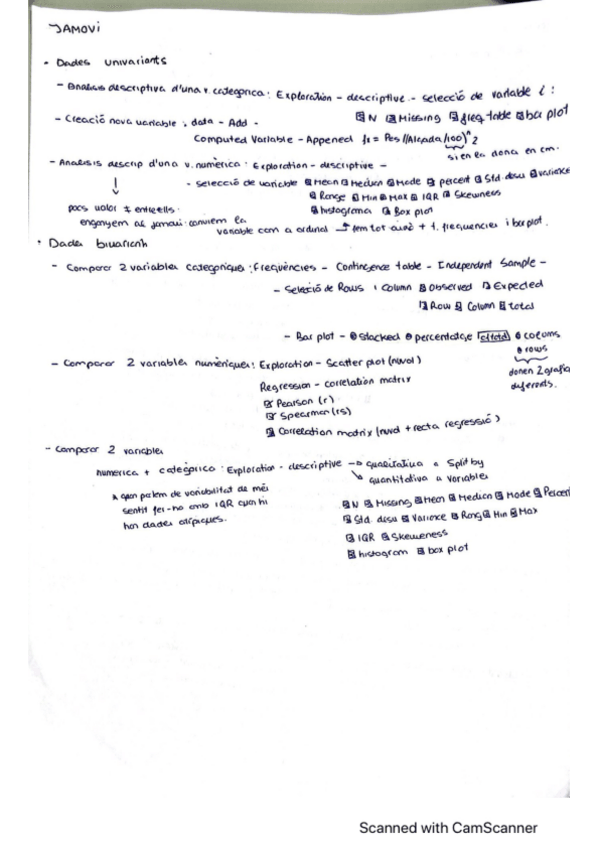 JAMOVI
• Dades univariants
- Analisis descriptiva d'una v. categorica: Exploration - descriptive - selecció de variable i:
☑ N ☑ Missing ☑ freq table ☑ bar plot
- Creació nova variable: data - Add -
Computed Variable - Appened fx = Pes/(Alçada/100)^2
si en la dona en cm.
- Analisis descrip d'una v. numèrica: Exploration - descriptive -
- selecció de variable ☑ Mean ☑ Median ☑ Mode ☑ percent ☑ Std. desv ☑ variance
☑ Range ☑ Min ☑ Max ☑ IQR ☑ Skewness
☑ histograma ☑ Box plot
pocs valor ≠ entre ells.
enganyem al jamovi: canviem la
variable com a ordinal → fem tot això + t. frequencies i barplot.
• Dades bivariants
- Comparar 2 variables categoriques: Frequències - Contingence table - Independent Sample -
- Selecció de Rows i Column ☑ Observed ☑ Expected
☑ Row ☑ Column ☑ total
- Bar plot - stacked percentatge of total colums
rows
donen 2 grafics
diferents.
- Comparar 2 variables numèriques: Exploration - Scatter plot (nuvol)
Regression - correlation matrix
☑ Pearson (r)
☑ Spearman (rs)
☑ Correlation matrix (nuvol + recta regressió)
- Comparar 2 variables
numèrica + categòrica: Exploration - descriptive → qualitativa a Split by
↘ quantitativa a Variables
quan parlem de variabilitat de més
sentit fer-ho amb IQR quan hi
han dades atípiques.
☑ N ☑ Missing ☑ Mean ☑ Median ☑ Mode ☑ Percent
☑ Std. desv ☑ Variance ☑ Rang ☑ Min ☑ Max
☑ IQR ☑ Skeweness
☑ histogram ☑ box plot
Scanned with CamScanner